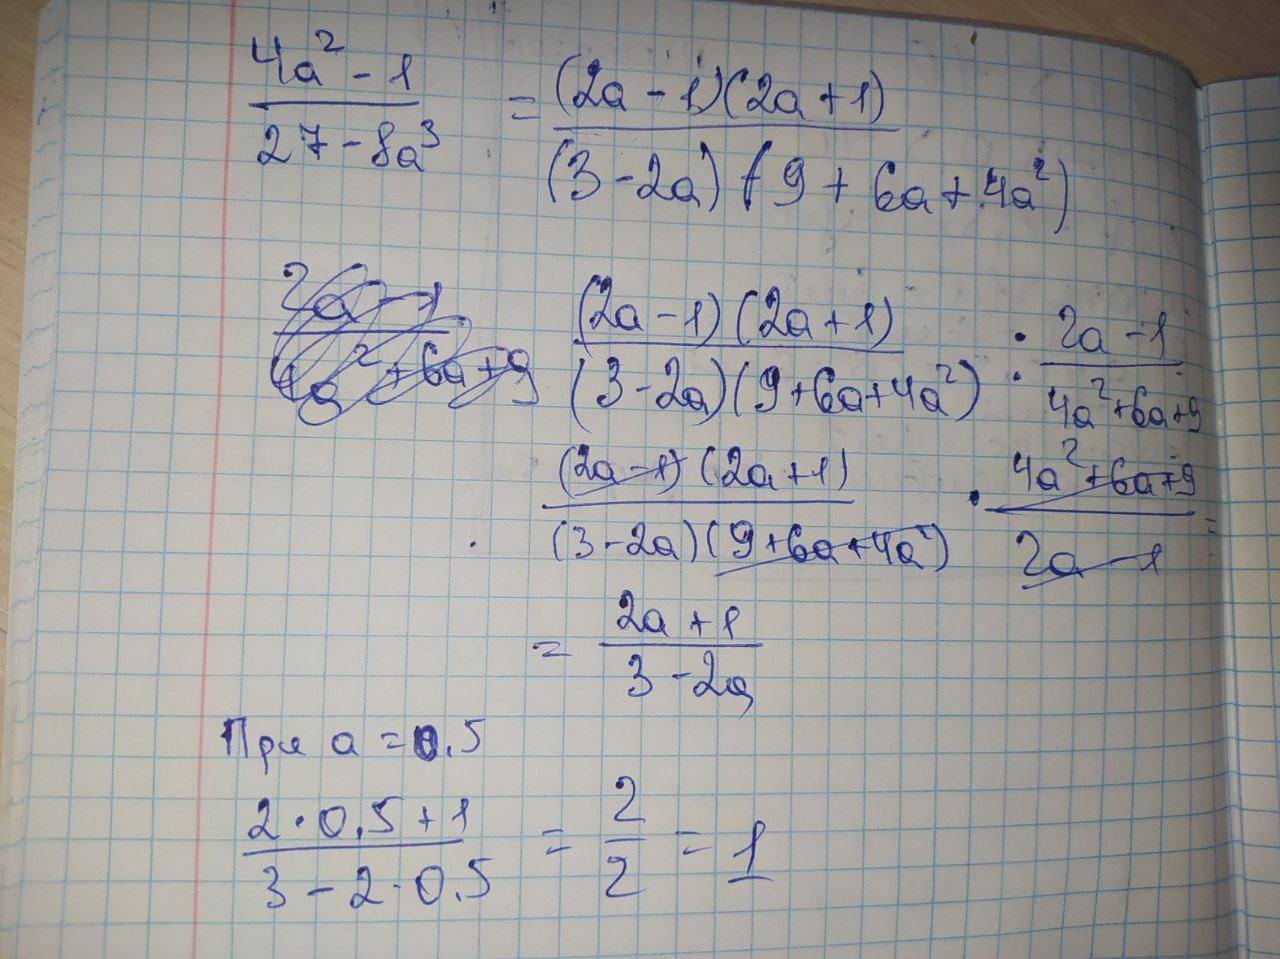 4a² - 1 / 27 - 8a³ = (2a - 1)(2a + 1) / (3 - 2a)(9 + 6a + 4a²)
(2a - 1)(2a + 1) / (3 - 2a)(9 + 6a + 4a²) : 2a - 1 / 4a² + 6a + 9
(2a - 1)(2a + 1) / (3 - 2a)(9 + 6a + 4a²) · 4a² + 6a + 9 / 2a - 1 =
= 2a + 1 / 3 - 2a
При a = 0.5
2 · 0.5 + 1 / 3 - 2 · 0.5 = 2 / 2 = 1